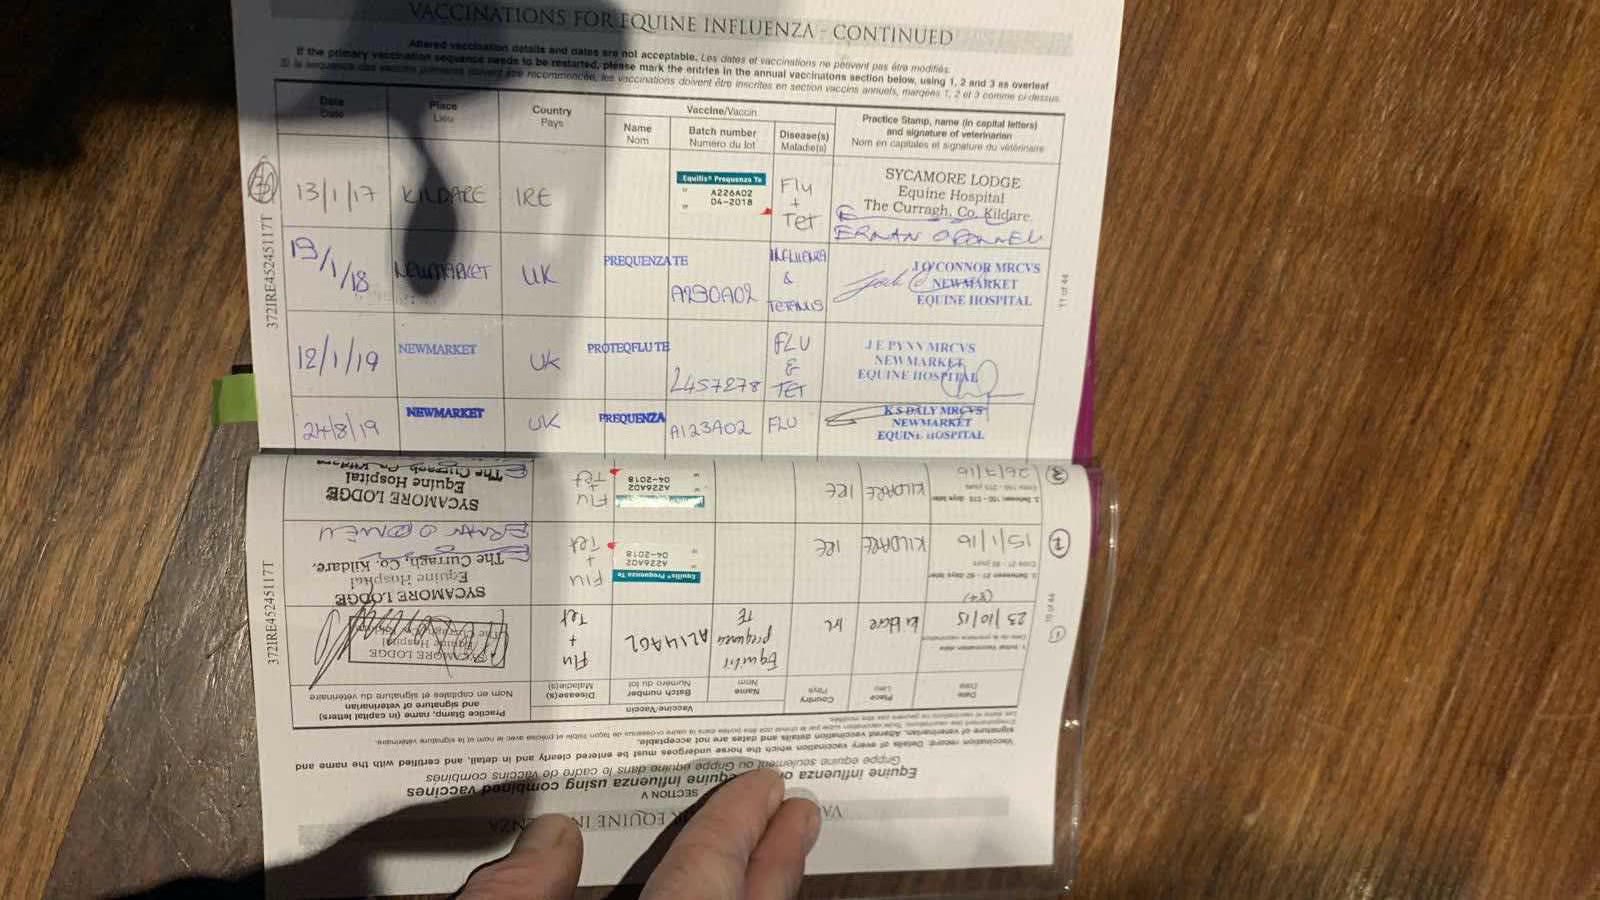 VACCINATIONS FOR EQUINE INFLUENZA - CONTINUED
Altered vaccination details and dates are not acceptable. Les dates et vaccinations ne peuvent pas être modifiés.
If the primary vaccination sequence needs to be restarted, please mark the entries in the annual vaccinatons section below, using 1, 2 and 3 as overleaf
Si la séquence des vaccins primaires doivent être recommencée, les vaccinations doivent être inscrites en section vaccins annuels, marqées 1, 2 et 3 comme ci-dessus.
Date
Date
Place
Lieu
Country
Pays
Vaccine/Vaccin
Name
Nom
Batch number
Numéro du lot
Disease(s)
Maladie(s)
Practice Stamp, name (in capital letters)
and signature of veterinarian
Nom en capitales et signature du vétérinaire
3
13/1/17
KILDARE
IRE
Equilis® Prequenza Te
A226A02
04-2018
Flu
+
Tet
SYCAMORE LODGE
Equine Hospital
The Curragh, Co. Kildare.
19/1/18
NEWMARKET
UK
PREQUENZA TE
A230A02
INFLUENZA
&
TETANUS
J O'CONNOR MRCVS
NEWMARKET
EQUINE HOSPITAL
12/1/19
NEWMARKET
UK
PROTEQFLU TE
L457278
FLU
&
TET
J E PYNN MRCVS
NEWMARKET
EQUINE HOSPITAL
24/8/19
NEWMARKET
UK
PREQUENZA
A123A02
FLU
K S DALY MRCVS
NEWMARKET
EQUINE HOSPITAL
372IRE45245117T
11 of 44
SECTION V
Equine influenza equine influenza using combined vaccines
Grippe équine seulement ou Grippe équine dans le cadre de vaccins combinés
Vaccination record: Details of every vaccination which the horse undergoes must be entered clearly and in detail, and certified with the name and
signature of veterinarian. Altered vaccination details and dates are not acceptable.
Date
Date
Place
Lieu
Country
Pays
Vaccine/Vaccin
Name
Nom
Batch number
Numéro du lot
Disease(s)
Maladie(s)
Practice Stamp, name (in capital letters)
and signature of veterinarian
Nom en capitales et signature du vétérinaire
1
1. Initial Vaccination date
23/10/15
Kildare
Irl
prequenza
TE
A214A02
Flu
+
Tet
SYCAMORE LODGE
Equine Hospital
The Curragh, Co. Kildare
(84)
2
2. Between 21 - 92 days later
15/1/16
KILDARE
IRE
Equilis® Prequenza Te
A226A02
04-2018
Flu
+
Tet
SYCAMORE LODGE
Equine Hospital
The Curragh, Co. Kildare.
3. Between 150 - 215 days later
26/7/16
KILDARE
IRE
A226A02
04-2018
Flu
+
Tet
SYCAMORE LODGE
Equine Hospital
The Curragh, Co. Kildare
372IRE45245117T
10 of 44